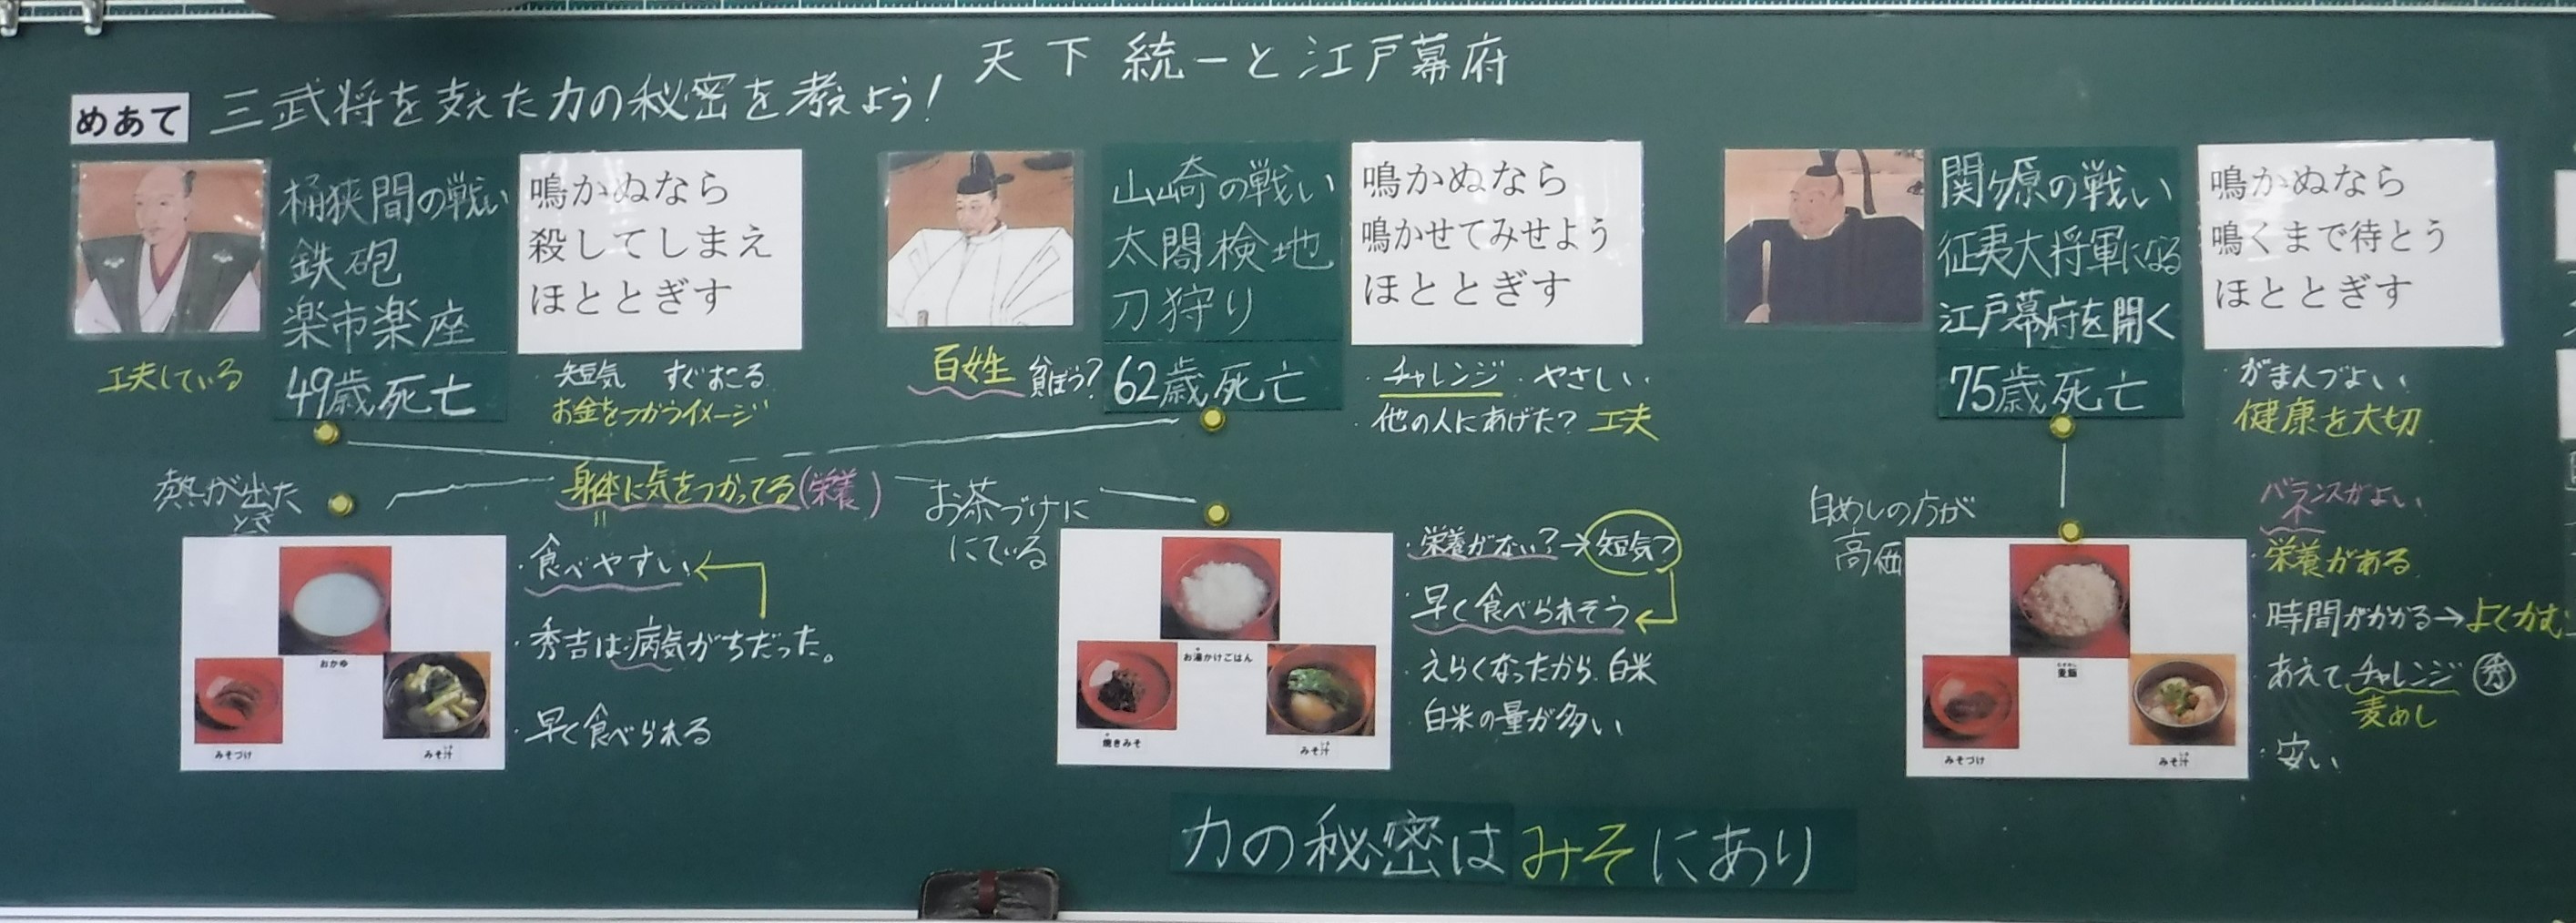 天下統一と江戸幕府
めあて
三武将を支えた力の秘密を考えよう!
桶狭間の戦い
鉄砲
楽市楽座
49歳死亡
鳴かぬなら
殺してしまえ
ほととぎす
工夫している
・短気 すぐおこる
お金をつかうイメージ
山崎の戦い
太閤検地
刀狩り
62歳死亡
鳴かぬなら
鳴かせてみせよう
ほととぎす
百姓 貧ぼう?
・チャレンジ ・やさしい
・他の人にあげた? 工夫
関ヶ原の戦い
征夷大将軍になる
江戸幕府を開く
75歳死亡
鳴かぬなら
鳴くまで待とう
ほととぎす
・がまんづよい
健康を大切
身体に気をつかってる(栄養)
熱が出た
とき
おかゆ
みそづけ
みそ汁
・食べやすい
・秀吉は病気がちだった。
・早く食べられる
お茶づけに
にている
お湯かけごはん
焼きみそ
みそ汁
・栄養がない?→短気?
早く食べられそう
えらくなったから 白米
白米の量が多い
白めしの方が
高価
麦飯
みそづけ
みそ汁
バランスがよい
・栄養がある
・時間がかかる→よくかむ
あえてチャレンジ 秀
麦めし
・安い
力の秘密はみそにあり